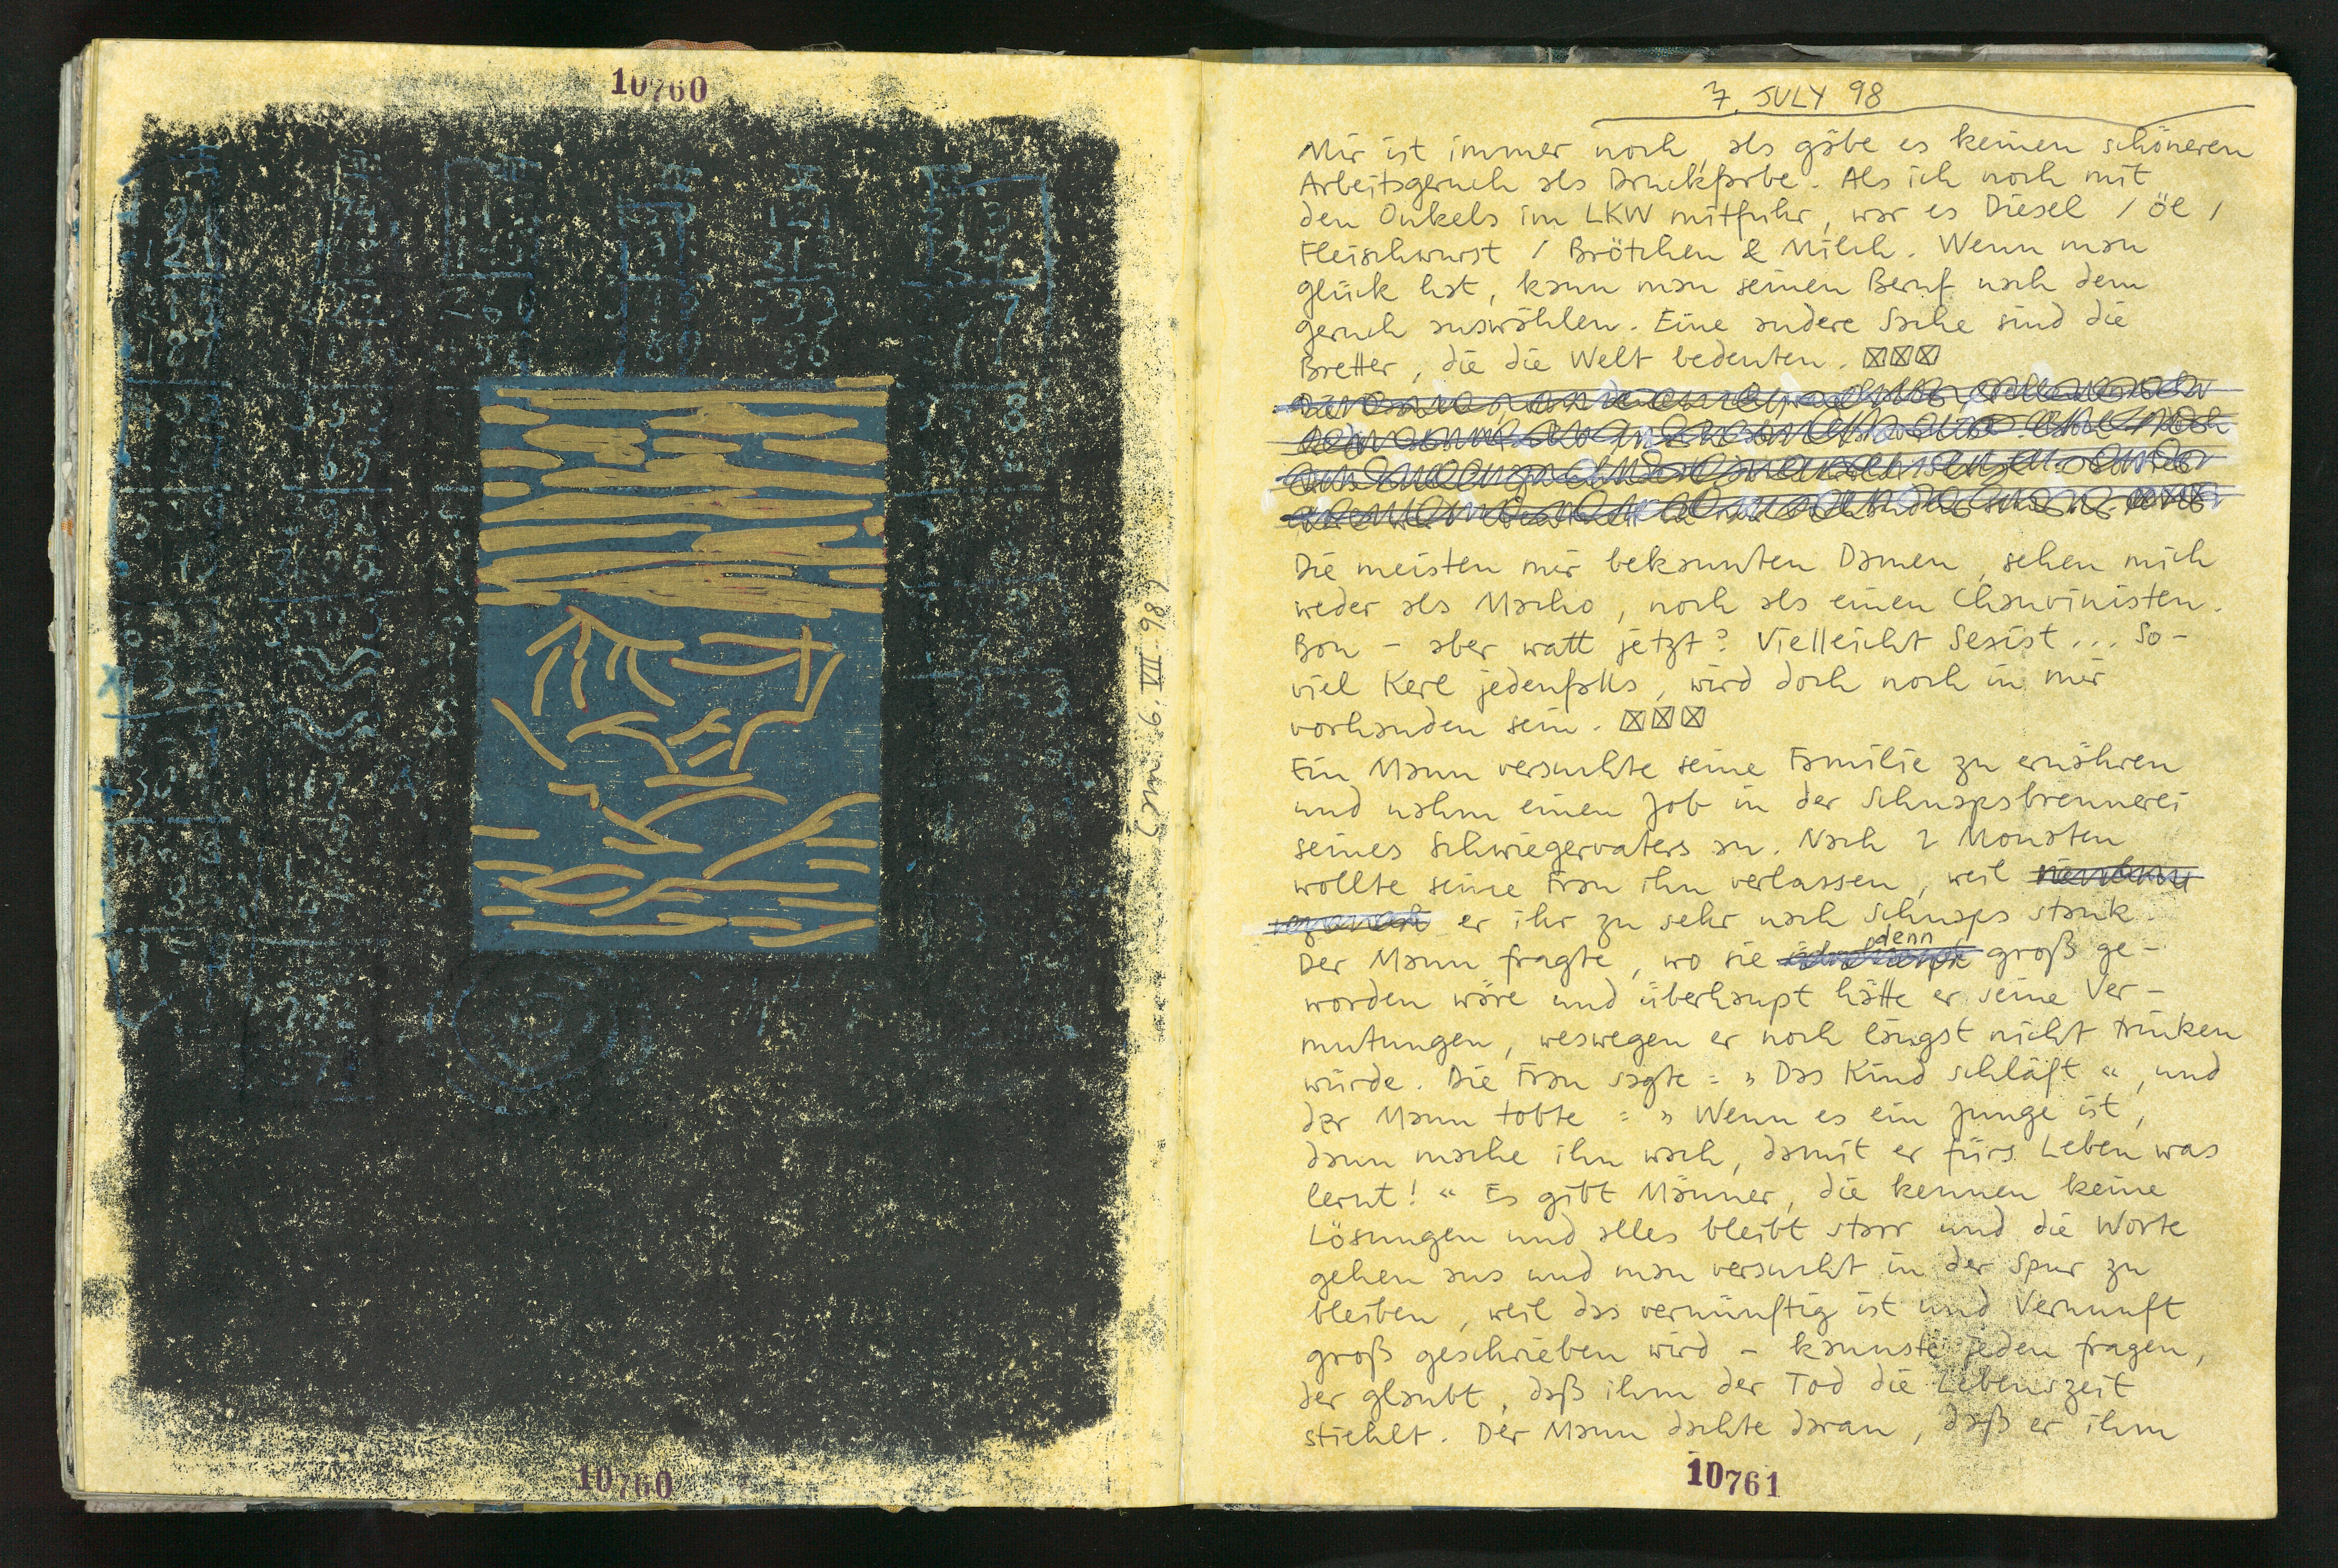 10760
10760
7. JULY 98
Mir ist immer noch, als gäbe es keinen schöneren
Arbeitsgeruch als Druckfarbe. Als ich noch mit
den Onkels im LKW mitfuhr, war es Diesel / Öl /
Fleischwurst / Brötchen & Milch. Wenn man
Glück hat, kann man seinen Beruf nach dem
Geruch auswählen. Eine andere Sache sind die
Bretter, die die Welt bedeuten. ☒☒☒
Die meisten mir bekannten Damen, sehen mich
weder als Macho, noch als einen Chauvinisten.
Bon – aber watt jetzt? Vielleicht Sexist... So-
viel Kerl jedenfalls, wird doch noch in mir
vorhanden sein. ☒☒☒
Ein Mann versuchte seine Familie zu ernähren
und nahm einen Job in der Schnapsbrennerei
seines Schwiegervaters an. Nach 2 Monaten
wollte seine Frau ihn verlassen, weil
er ihr zu sehr nach Schnaps stank.
Der Mann fragte, wo sie denn groß ge-
worden wäre und überhaupt hätte er seine Ver-
mutungen, weswegen er noch längst nicht trinken
würde. Die Frau sagte: »Das Kind schläft«, und
der Mann tobte: »Wenn es ein Junge ist,
dann mache ihn wach, damit er fürs Leben was
lernt!« Es gibt Männer, die kennen keine
Lösungen und alles bleibt starr und die Worte
gehen aus und man versucht in der Spur zu
bleiben, weil das vernünftig ist und Vernunft
groß geschrieben wird – kannste jeden fragen,
der glaubt, daß ihm der Tod die Lebenszeit
stiehlt. Der Mann dachte daran, daß er ihm
10761